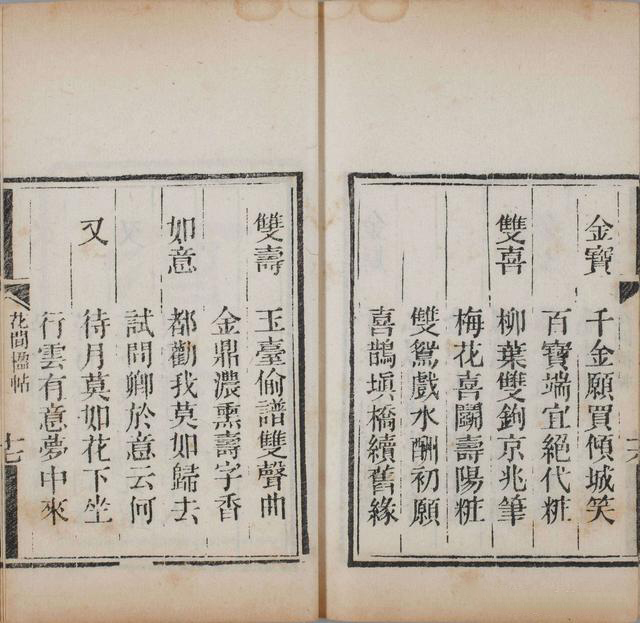 金寶 千金願買傾城笑
百寶端宜絕代粧
雙喜 柳葉雙鉤京兆筆
梅花喜鬭壽陽粧
雙鴛戲水酬初願
喜鵲塡橋續舊緣
雙壽 玉臺偷譜雙聲曲
金鼎濃熏壽字香
如意 都勸我莫如歸去
試問卿於意云何
又 待月莫如花下坐
行雲有意夢中來
花間楹帖 十七